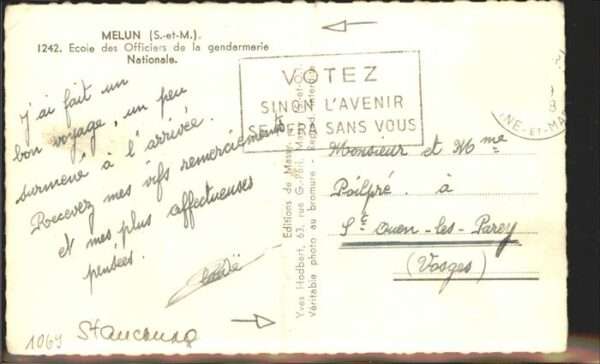 MELUN (S.-et-M.).
1242. Ecole des Officiers de la gendarmerie
Nationale.
J'ai fait un
bon voyage, un peu
surmené à l'arrivée.
Recevez mes vifs remerciements
et mes plus affectueuses
pensées.
1069
VOTEZ
SINON L'AVENIR
SE FERA SANS VOUS
NE-ET-MA
Editions de
Yves Hodbert, 63, rue G.
Véritable photo au bromure - Reprod. interdite
Monsieur et Mme
Poilpré. à
St Ouen-les-Parey
(Vosges)